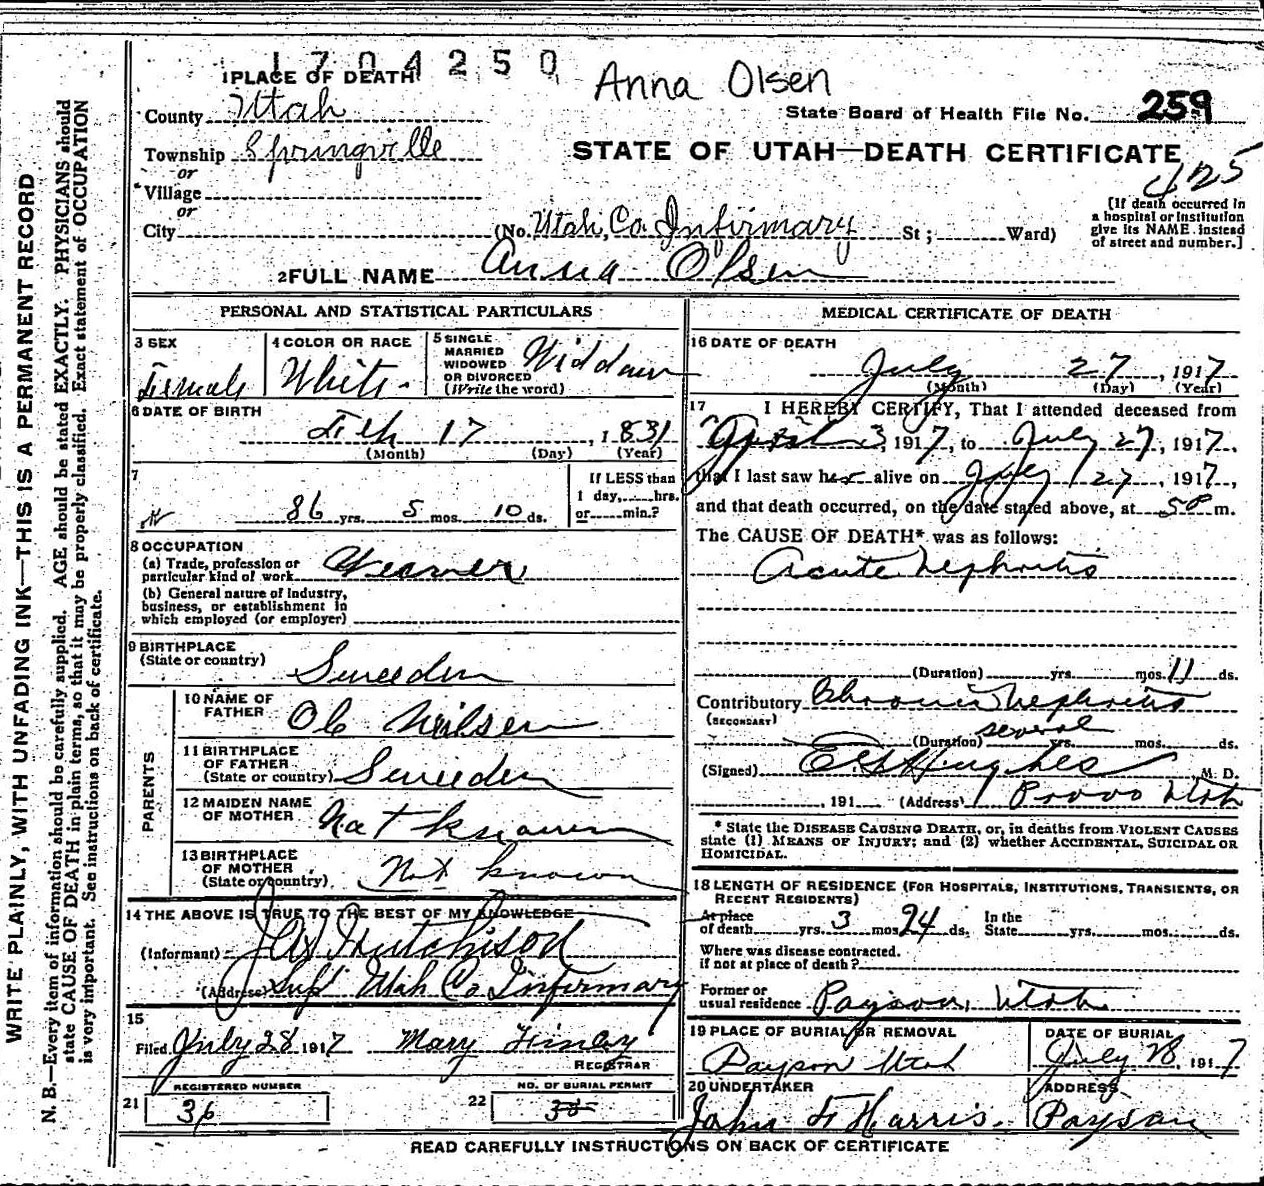 1704250
Anna Olsen
1 PLACE OF DEATH
County Utah
State Board of Health File No. 259
Township Springville
or
STATE OF UTAH—DEATH CERTIFICATE
425
Village
or
City (No. Utah, Co. Infirmary St; Ward)
[If death occurred in
a hospital or institution
give its NAME instead
of street and number.]
2 FULL NAME Anna Olsen
PERSONAL AND STATISTICAL PARTICULARS
3 SEX
Female
4 COLOR OR RACE
White
5 SINGLE
MARRIED
WIDOWED
OR DIVORCED
(Write the word)
Widdow
6 DATE OF BIRTH
Feb 17, 1831
(Month) (Day) (Year)
7
86 yrs. 5 mos. 10 ds.
If LESS than
1 day, hrs.
or min.?
8 OCCUPATION
(a) Trade, profession or
particular kind of work Weaver
(b) General nature of industry,
business, or establishment in
which employed (or employer)
9 BIRTHPLACE
(State or country) Sweeden
PARENTS
10 NAME OF
FATHER Ole Neilsen
11 BIRTHPLACE
OF FATHER
(State or country) Sweeden
12 MAIDEN NAME
OF MOTHER Not known
13 BIRTHPLACE
OF MOTHER
(State or country) Not known
14 THE ABOVE IS TRUE TO THE BEST OF MY KNOWLEDGE
(Informant) J W Hutchison
(Address) Supt Utah Co Infirmary
15
Filed July 28 1917 Mary Finley
REGISTRAR
REGISTERED NUMBER
21 36
NO. OF BURIAL PERMIT
22 38
MEDICAL CERTIFICATE OF DEATH
16 DATE OF DEATH
July 27, 1917
(Month) (Day) (Year)
17 I HEREBY CERTIFY, That I attended deceased from
April 3, 1917, to July 27, 1917,
that I last saw her alive on July 27, 1917,
and that death occurred, on the date stated above, at 5P m.
The CAUSE OF DEATH* was as follows:
Acute Nephritis
(Duration) yrs. mos. 11 ds.
Contributory Chronic Nephritis
(SECONDARY)
(Duration) several yrs. mos. ds.
(Signed) E G Hughes, M. D.
, 191 (Address) Provo Utah
* State the DISEASE CAUSING DEATH, or, in deaths from VIOLENT CAUSES
state (1) MEANS OF INJURY; and (2) whether ACCIDENTAL, SUICIDAL OR
HOMICIDAL.
18 LENGTH OF RESIDENCE (FOR HOSPITALS, INSTITUTIONS, TRANSIENTS, OR
RECENT RESIDENTS)
At place
of death yrs. 3 mos. 24 ds. In the
State yrs. mos. ds.
Where was disease contracted.
if not at place of death?
Former or
usual residence Payson, Utah
19 PLACE OF BURIAL OR REMOVAL
Payson Utah
DATE OF BURIAL
July 28, 1917
20 UNDERTAKER
John F Harris.
ADDRESS
Payson
READ CAREFULLY INSTRUCTIONS ON BACK OF CERTIFICATE
WRITE PLAINLY, WITH UNFADING INK—THIS IS A PERMANENT RECORD
N. B.—Every item of information should be carefully supplied. AGE should be stated EXACTLY. PHYSICIANS should
state CAUSE OF DEATH in plain terms, so that it may be properly classified. Exact statement of OCCUPATION
is very important. See instructions on back of certificate.